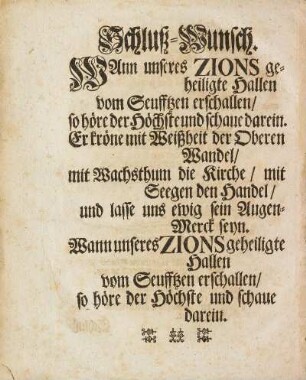 Schluß-Wunsch.
WAnn unseres ZIONS ge-
heiligte Hallen
vom Seufftzen erschallen/
so höre der Höchste und schaue darein.
Er kröne mit Weißheit der Oberen
Wandel/
mit Wachsthum die Kirche/ mit
Seegen den Handel/
und lasse uns ewig sein Augen-
Merck seyn.
Wann unseres ZIONS geheiligte
Hallen
vom Seufftzen erschallen/
so höre der Höchste und schaue
darein.